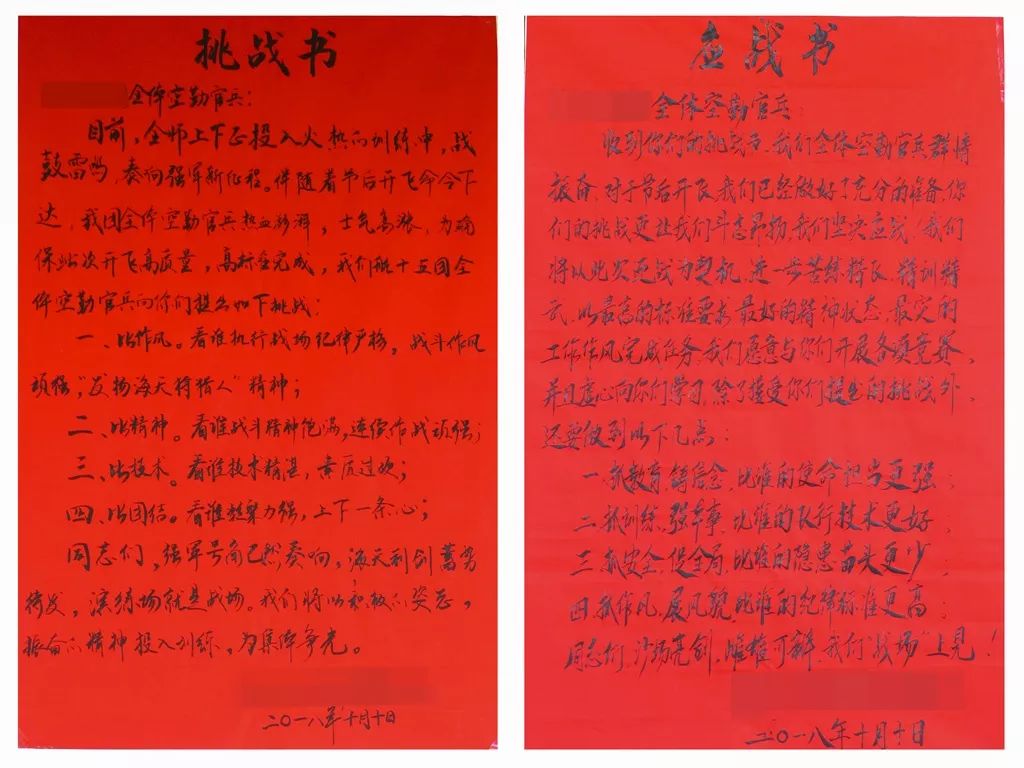 挑战书
全体空勤官兵：
目前，全师上下正投入火热的训练中，战
鼓雷鸣，奏向强军新征程。伴随着节后开飞命令下
达，我团全体空勤官兵热血澎湃，士气高涨，为确
保此次开飞高质量，高标准完成，我们航十五团全
体空勤官兵向你们提出如下挑战：
一、比作风。看谁执行战场纪律严格，战斗作风
顽强，"发扬海天猎人"精神；
二、比精神。看谁战斗精神饱满，连续作战顽强；
三、比技术。看谁技术精湛，素质过硬；
四、比团结。看谁凝聚力强，上下一条心；
同志们，强军号角已然奏响，海天利剑蓄势
待发，演练场就是战场。我们将以积极的姿态，
振奋的精神投入训练，为集体争光。
二〇一八年十月十日
应战书
全体空勤官兵：
收到你们的挑战书，我们全体空勤官兵群情
振奋，对于节后开飞，我们已经做好了充分的准备，你
们的挑战更让我们斗志昂扬，我们坚决应战！我们
将以此次应战为契机，进一步苦练精飞，精训精
武，以最高的标准要求，最好的精神状态，最实的
工作作风完成任务。我们愿意与你们开展各项竞赛，
并且虚心向你们学习，除了接受你们提出的挑战外，
还要做到以下几点：
一、抓教育，铸信念，比谁的使命担当更强；
二、抓训练，强本事，比谁的飞行技术更好；
三、抓安全，促全局，比谁的隐患苗头更少；
四、抓作风，展风貌，比谁的纪律标准更高；
同志们，沙场亮剑，雌雄可辨，我们"战场"上见！
二〇一八年十月十日